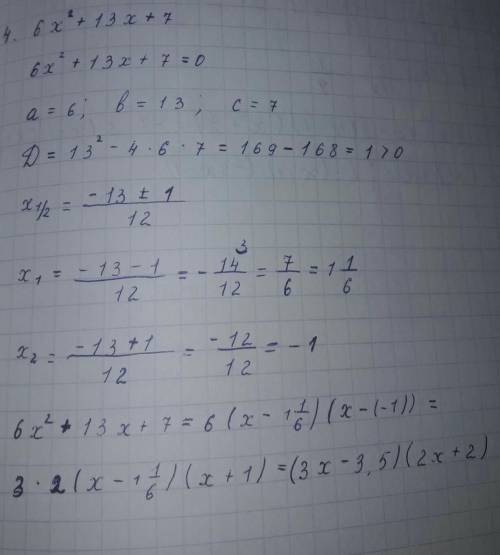 4. 6x² + 13x + 7
6x² + 13x + 7 = 0
a = 6; b = 13; c = 7
D = 13² - 4 · 6 · 7 = 169 - 168 = 1 > 0
x₁/₂ = (-13 ± 1)/12
x₁ = (-13 - 1)/12 = -14/12 = 7/6 = 1 1/6
x₂ = (-13 + 1)/12 = -12/12 = -1
6x² + 13x + 7 = 6(x - 1 1/6)(x - (-1)) =
3 · 2(x - 1 1/6)(x + 1) = (3x - 3,5)(2x + 2)